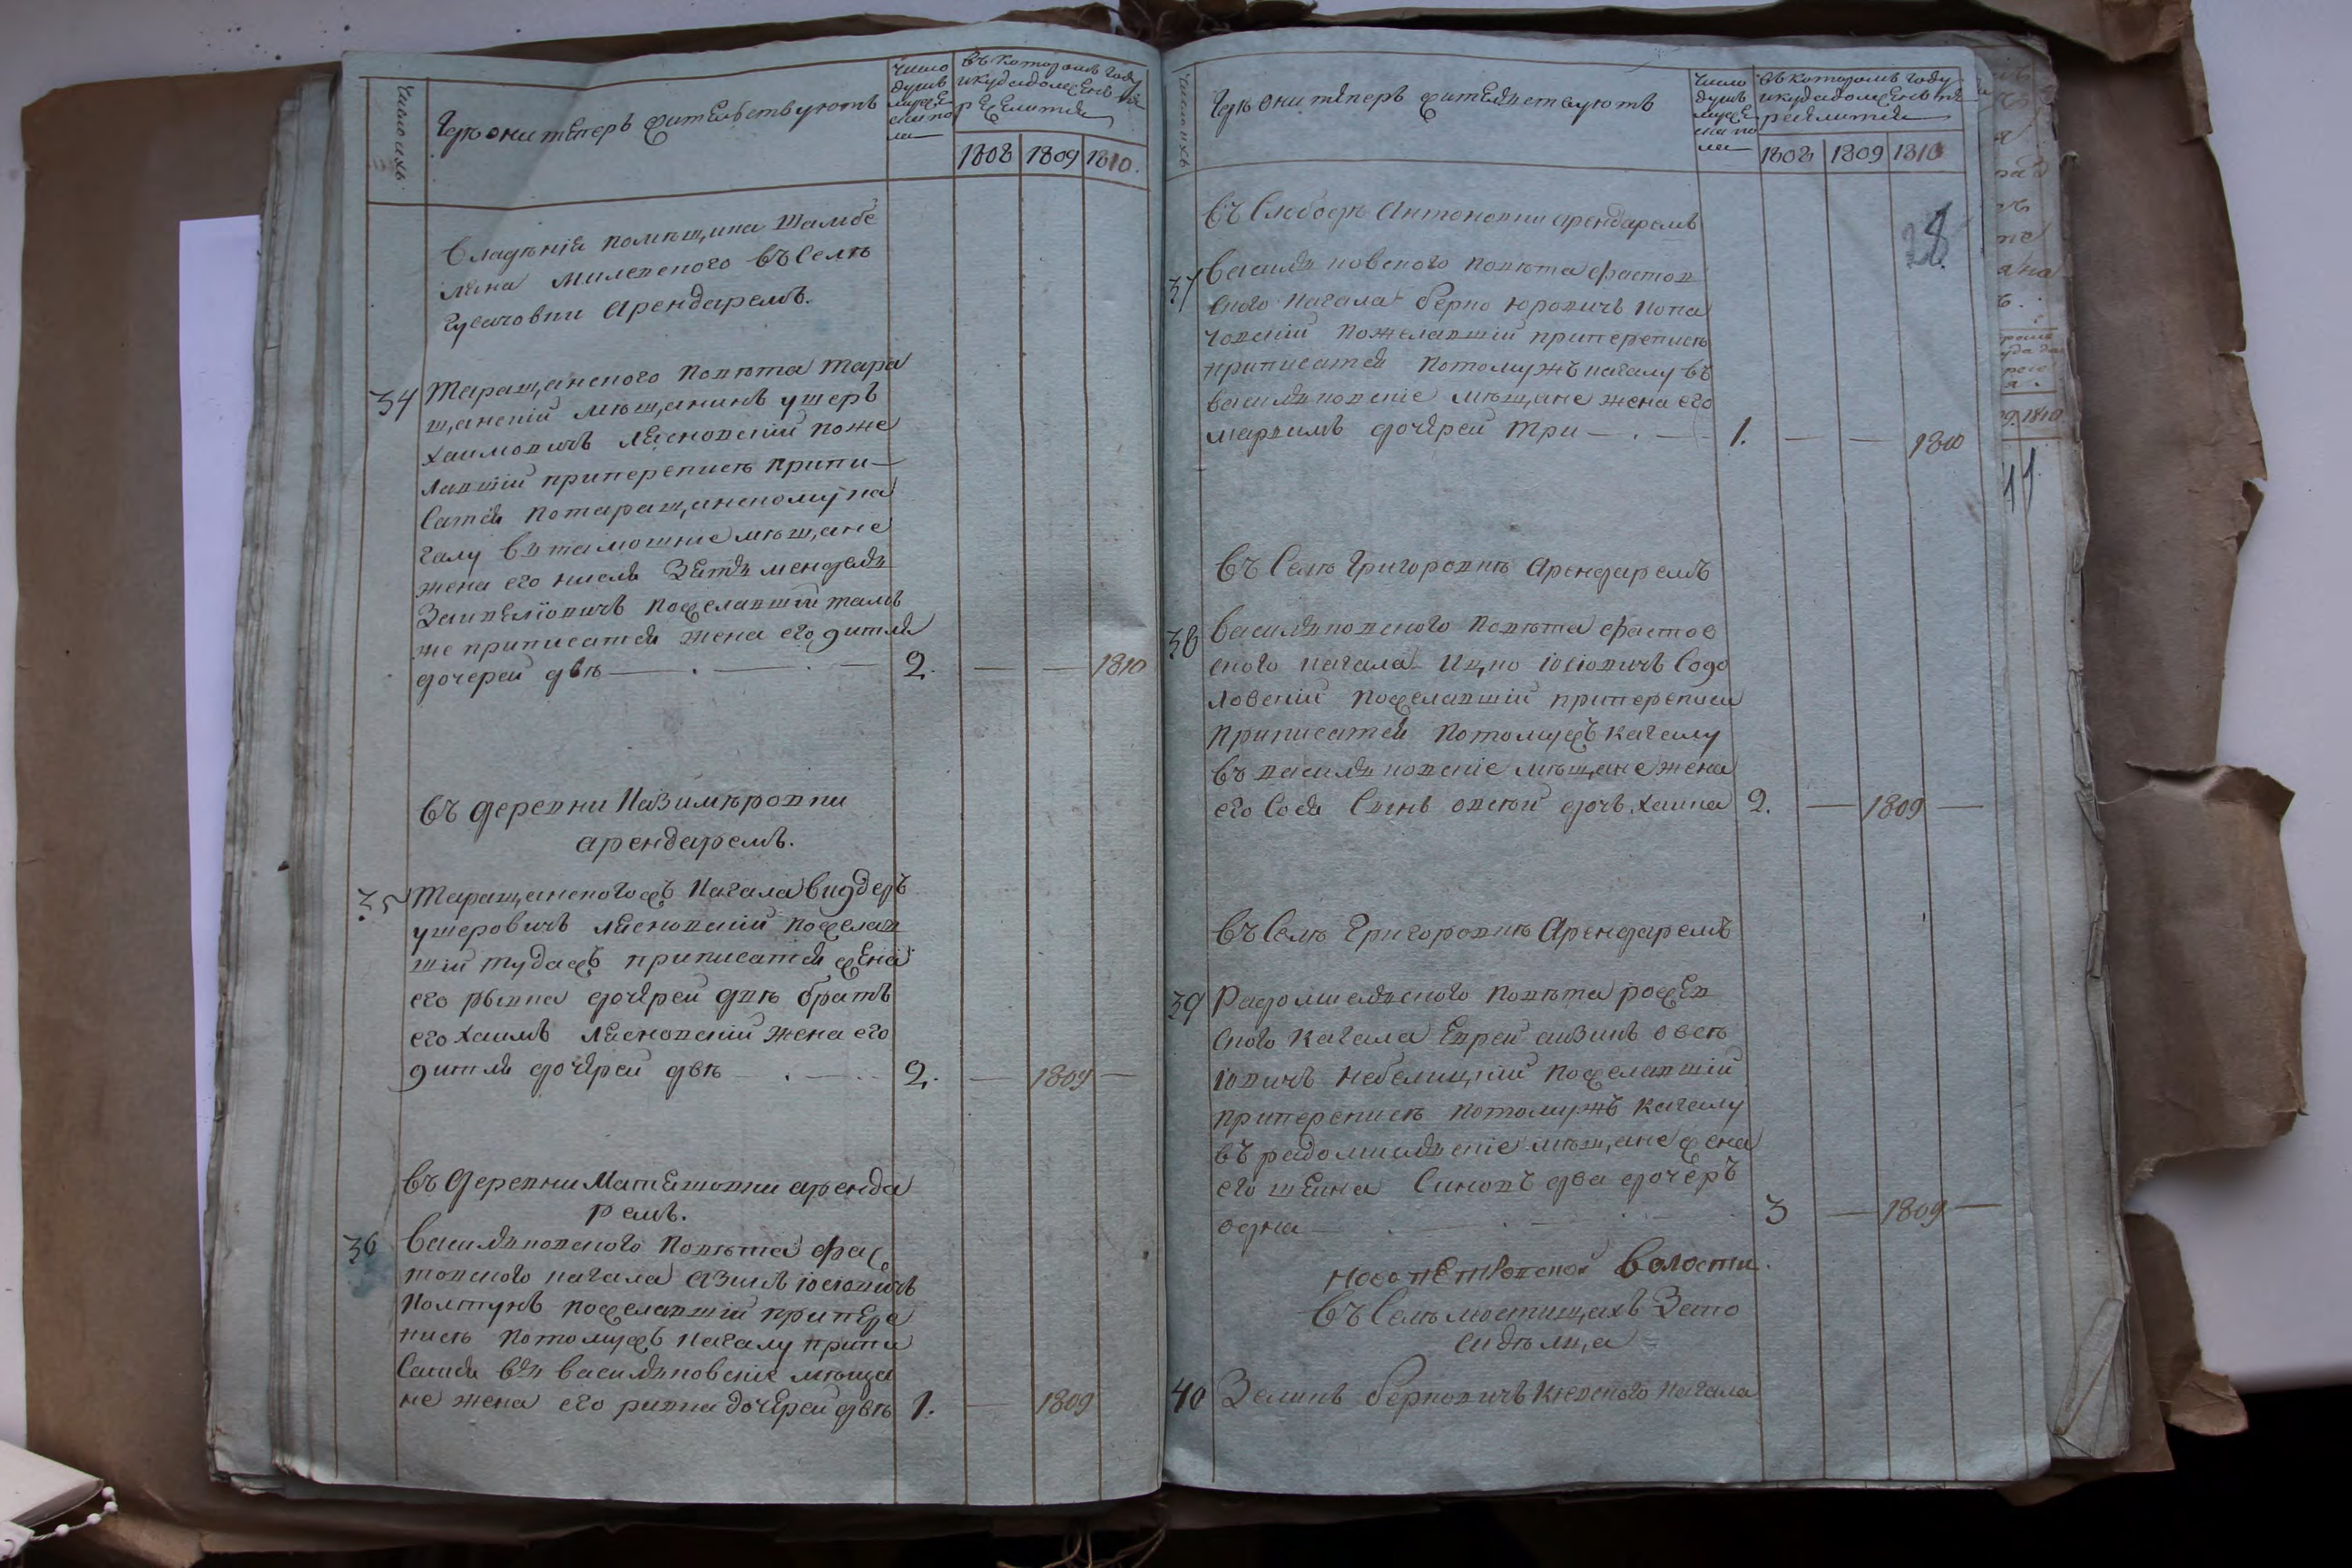 Число ихъ
Гдѣ они тѣперъ жителствуютъ
Число
душъ
мужес
каго по
ла
Въ которомъ году
и куда должены пе
реселится
1808 1809 1810.
Владѣнія помѣщика Шамбе
ляна Милевского въ Селѣ
Гусачовки Арендаремъ.
34 Таращанского Повѣта тара
щанскій мѣщанинъ ушеръ
Хаимовичъ Лясковскій поже
лавшій приперепись припи—
сатся потаращанскому ка
галу въ тамошние мѣщане
жена его кисля Зять мендель
пожелавшій тамъ
же приписатся жена его дитля
дочерей двѣ — . — . — 2. — — 1810
въ деревни Казимѣровки
арендаремъ.
35 Таращанскогожъ Кагала
ушеровичъ Лясковскій пожелав
шій тудажъ приписатся жена
его ривка дочерей двѣ братъ
его Хаимъ Лясковскій жена его
дитля дочерей двѣ — . — 2. — 1809 —
въ деревни Матешовки аренда
ремъ.
36 Василковского Повѣта фас
товского кагала Азикъ іосіовичъ
Колтунъ пожелавшій припере
пись потомужъ кагалу припи
сатся въ василковские мѣща
не жена его ривка дочерей двѣ 1. — 1809
Число ихъ
Гдѣ они тѣперъ жителствуютъ
Число
душъ
мужес
каго по
ла
Въ которомъ году
и куда должены пе
реселится
1808 1809 1810
28.
въ Слободѣ Антоновки арендаремъ
37 Василковского повѣта фастов
ского кагала берко юровичъ копа
човскій пожелавшій приперепись
приписатся потомужъ кагалу въ
василковские мѣщане жена его
марямъ дочерей три — . — 1. — — 1810
въ Селѣ Григоровкѣ Арендаремъ
38 Василковского Повѣта фастов
ского кагала Ицко іосіовичъ Содо
ловскій пожелавшій приперепися
приписатся потомужъ кагалу
въ василковские мѣщане жена
его Сося Синъ овсѣй дочъ хаика 2. — 1809 —
въ Селѣ Григоровкѣ Арендаремъ
39 Радомишлского Повѣта рожев
ского кагала Еврей аизикъ овсѣ
іовичъ небелицкій пожелавшій
приперепись потомужъ кагалу
въ радомишлские мѣщане жена
его шеина Синовъ два дочеръ
одна — . — . — 3 — 1809 —
новопетровской волости.
въ Селѣ мостищахъ Зато
сидѣлца
40 Зеликъ берковичъ Киевского кагала
11.